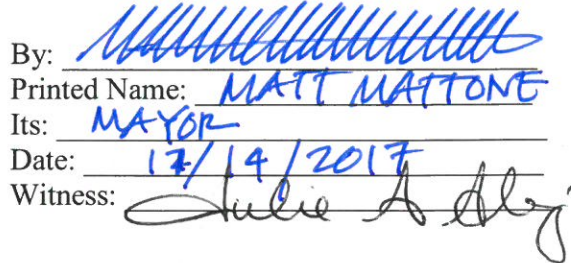 By:
Printed Name: MATT MATTONE
Its: MAYOR
Date: 12/14/2017
Witness: Julie A